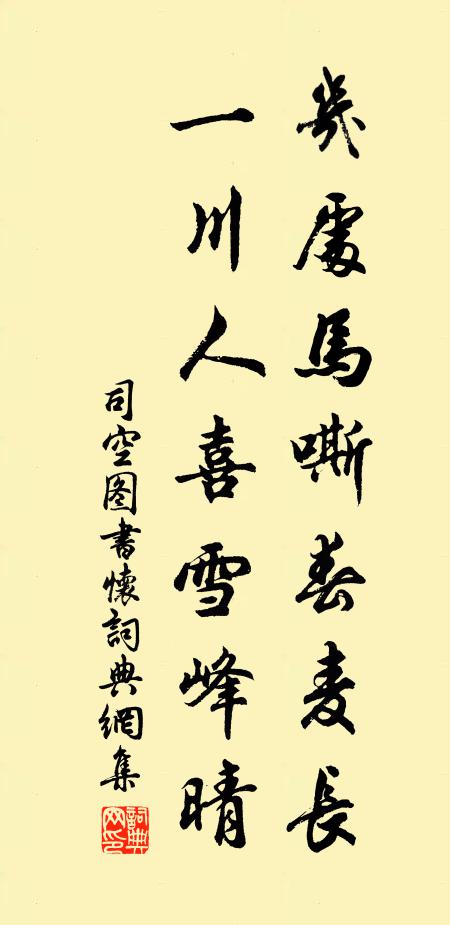 幾處馬嘶春麦長
一川人喜雪峰晴
司空图書懷詞典網集
詞典网印